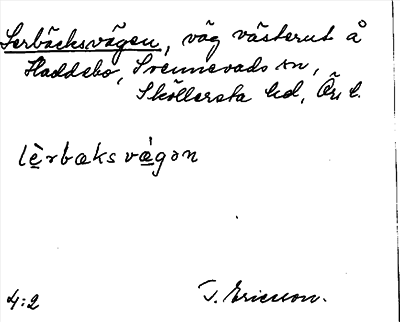 Lerbäcksvägen, väg västerut å
Haddebo, Svennevads sn,
Sköllersta hd, Ör. l.
lèrbæksvǽgən
4:2
T. Ericsson.